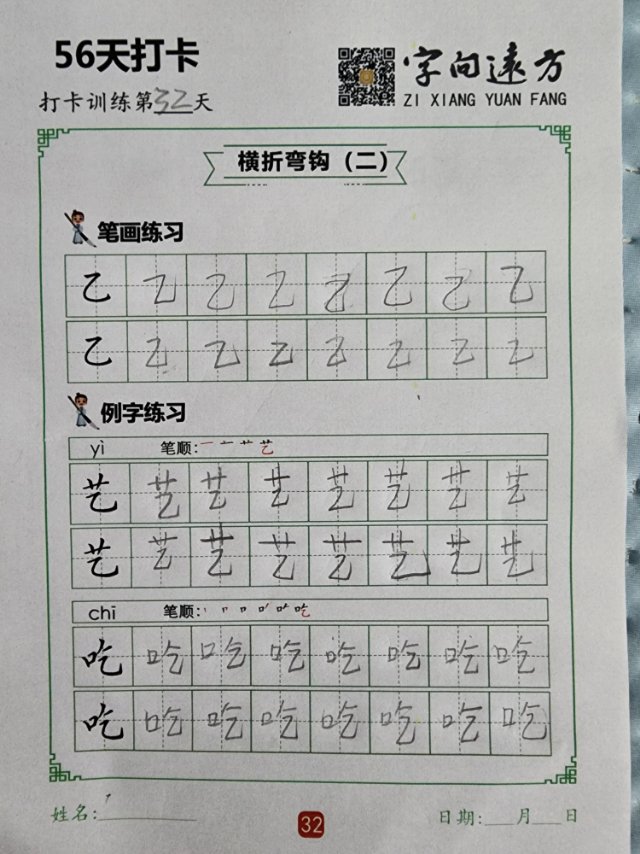 56天打卡
字向远方
打卡训练第32天
ZI XIANG YUAN FANG
横折弯钩（二）
笔画练习
乙 乙 乙 乙 乙 乙 乙 乙
乙 乙 乙 乙 乙 乙 乙 乙
例字练习
yì 笔顺:一 艹 艺
艺 艺 艺 艺 艺 艺 艺 艺
艺 艺 艺 艺 艺 艺 艺 艺
chī 笔顺: 吃
吃 吃 吃 吃 吃 吃 吃 吃
吃 吃 吃 吃 吃 吃 吃 吃
姓名:
32
日期: 月 日